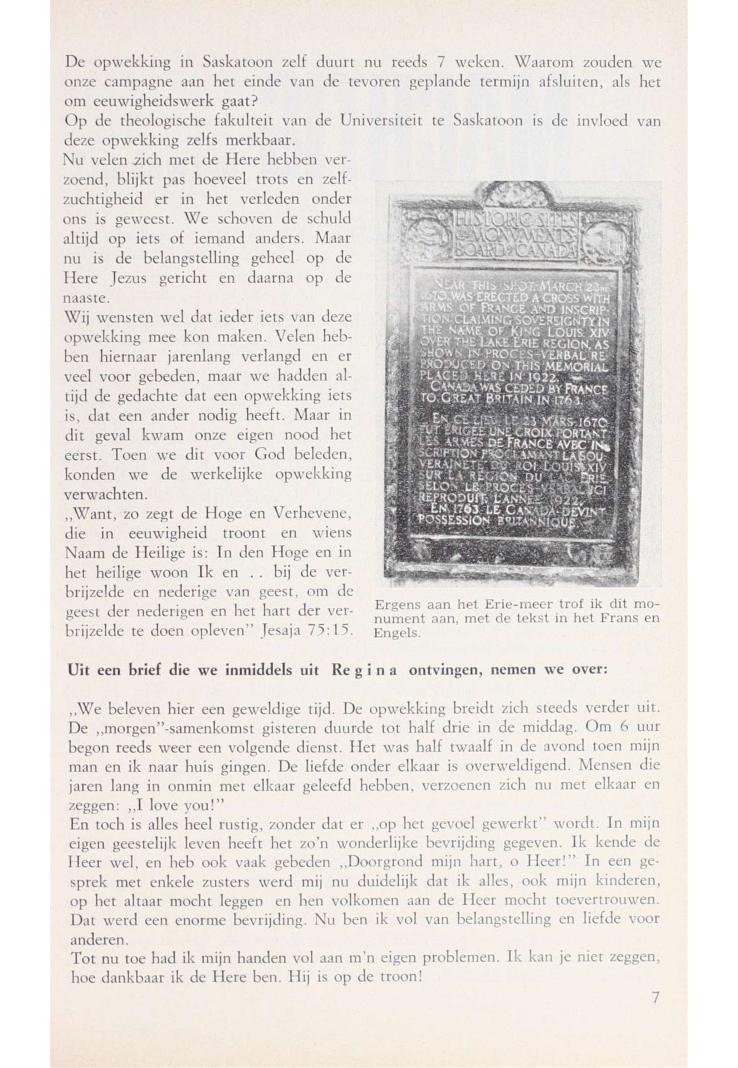 De opwekking in Saskatoon zelf duurt nu reeds 7 weken. Waarom zouden we
onze campagne aan het einde van de tevoren geplande termijn afsluiten, als het
om eeuwigheidswerk gaat?
Op de theologische fakulteit van de Universiteit te Saskatoon is de invloed van
deze opwekking zelfs merkbaar.
Nu velen zich met de Here hebben ver-
zoend, blijkt pas hoeveel trots en zelf-
zuchtigheid er in het verleden onder
ons is geweest. We schoven de schuld
altijd op iets of iemand anders. Maar
nu is de belangstelling geheel op de
Here Jezus gericht en daarna op de
naaste.
Wij wensten wel dat ieder iets van deze
opwekking mee kon maken. Velen heb-
ben hiernaar jarenlang verlangd en er
veel voor gebeden, maar we hadden al-
tijd de gedachte dat een opwekking iets
is, dat een ander nodig heeft. Maar in
dit geval kwam onze eigen nood het
eerst. Toen we dit voor God beleden,
konden we de werkelijke opwekking
verwachten.
,,Want, zo zegt de Hoge en Verhevene,
die in eeuwigheid troont en wiens
Naam de Heilige is: In den Hoge en in
het heilige woon Ik en . . bij de ver-
brijzelde en nederige van geest, om de
geest der nederigen en het hart der ver-
brijzelde te doen opleven" Jesaja 75:15.
HISTORIC SITES
AND MONUMENTS
BOARD OF CANADA
NEAR THIS SPOT, MARCH 23RD
1670, WAS ERECTED A CROSS WITH
ARMS OF FRANCE AND INSCRIP-
TION CLAIMING SOVEREIGNTY IN
THE NAME OF KING LOUIS XIV
OVER THE LAKE ERIE REGION, AS
SHOWN IN PROCES-VERBAL RE-
PRODUCED ON THIS MEMORIAL
PLACED HERE IN 1922.
CANADA WAS CEDED BY FRANCE
TO GREAT BRITAIN IN 1763.
EN CE LIEU LE 23 MARS, 1670
FUT ERIGÉE UNE CROIX PORTANT
LES ARMES DE FRANCE AVEC IN-
SCRIPTION PROCLAMANT LA SOU-
VERAINETÉ DU ROI LOUIS XIV
SUR LA RÉGION DU LAC ERIE
SELON LE PROCÈS VERBAL ICI
REPRODUIT, L'ANNÉE 1922.
EN 1763 LE CANADA DEVINT
POSSESSION BRITANNIQUE
Ergens aan het Erie-meer trof ik dit mo-
nument aan, met de tekst in het Frans en
Engels.
Uit een brief die we inmiddels uit Regina ontvingen, nemen we over:
,,We beleven hier een geweldige tijd. De opwekking breidt zich steeds verder uit.
De ,,morgen"-samenkomst gisteren duurde tot half drie in de middag. Om 6 uur
begon reeds weer een volgende dienst. Het was half twaalf in de avond toen mijn
man en ik naar huis gingen. De liefde onder elkaar is overweldigend. Mensen die
jaren lang in onmin met elkaar geleefd hebben, verzoenen zich nu met elkaar en
zeggen: ,,I love you!"
En toch is alles heel rustig, zonder dat er ,,op het gevoel gewerkt" wordt. In mijn
eigen geestelijk leven heeft het zo'n wonderlijke bevrijding gegeven. Ik kende de
Heer wel, en heb ook vaak gebeden ,,Doorgrond mijn hart, o Heer!" In een ge-
sprek met enkele zusters werd mij nu duidelijk dat ik alles, ook mijn kinderen,
op het altaar mocht leggen en hen volkomen aan de Heer mocht toevertrouwen.
Dat werd een enorme bevrijding. Nu ben ik vol van belangstelling en liefde voor
anderen.
Tot nu toe had ik mijn handen vol aan m'n eigen problemen. Ik kan je niet zeggen,
hoe dankbaar ik de Here ben. Hij is op de troon!
7